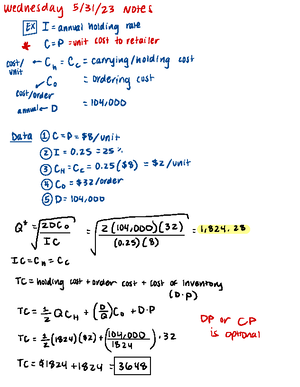 Wednesday 5/31/23 Notes
EX I = annual holding rate
* C=P = unit cost to retailer
cost/unit ← Cₕ = C꜀ = carrying/holding cost
cost/order ↙ C₀ = ordering cost
annual ← D = 104,000
Data ① C=P=$8/unit
② I = 0.25 = 25%
③ Cₕ = C꜀ = 0.25($8) = $2/unit
④ C₀ = $32/order
⑤ D = 104,000
Q* = √(2DC₀ / IC) = √(2(104,000)(32) / (0.25)(8)) = 1,824.28
IC = Cₕ = C꜀
TC = holding cost + order cost + cost of inventory
(D·P)
TC = 1/2 QCₕ + (D/Q)C₀ + D·P
DP or CP
is optional
TC = 1/2 (1824)($2) + (104,000/1824) · 32
TC = $1824 + 1824 = 3648